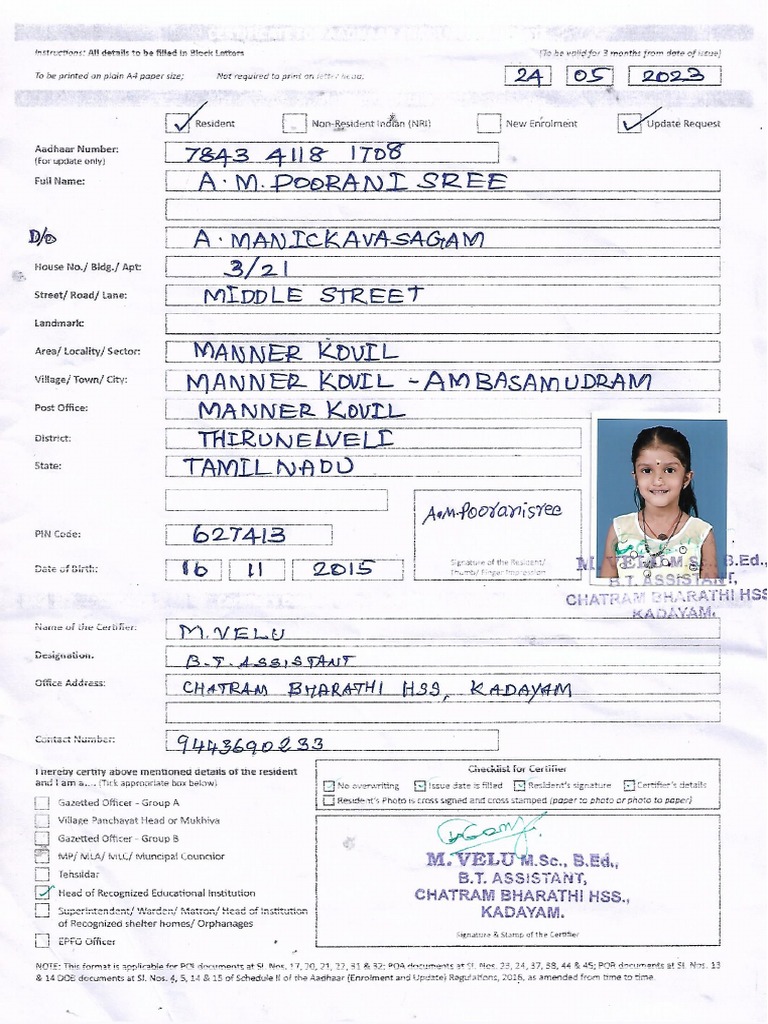 Instructions: All details to be filled in Block Letters
(To be valid for 3 months from date of issue)
To be printed on plain A4 paper size; Not required to print on letter head.
24 05 2023
Resident Non-Resident Indian (NRI) New Enrolment Update Request
Aadhaar Number: 7843 4118 1708
(For update only)
Full Name: A.M.POORANI SREE
D/o A. MANICKAVASAGAM
House No./ Bldg./ Apt: 3/21
Street/ Road/ Lane: MIDDLE STREET
Landmark:
Area/ Locality/ Sector: MANNER KOVIL
Village/ Town/ City: MANNER KOVIL - AMBASAMUDRAM
Post Office: MANNER KOVIL
District: THIRUNELVELI
State: TAMILNADU
A.M.Pooranisree
PIN Code: 627413
Signature of the Resident/
Thumb/ Finger Impression
Date of Birth: 16 11 2015
M. VELU M.Sc., B.Ed.,
B.T. ASSISTANT,
CHATRAM BHARATHI HSS
KADAYAM.
Name of the Certifier: M.VELU
Designation: B.T. ASSISTANT
Office Address: CHATRAM BHARATHI HSS, KADAYAM
Contact Number: 9443690233
I hereby certify above mentioned details of the resident
and I am a.... (Tick appropriate box below)
Gazetted Officer - Group A
Village Panchayat Head or Mukhiya
Gazetted Officer - Group B
MP/ MLA/ MLC/ Muncipal Councilor
Tehsildar
Head of Recognized Educational Institution
Superintendent/ Warden/ Matron/ Head of Institution
of Recognized shelter homes/ Orphanages
EPFO Officer
Checklist for Certifier
No overwriting Issue date is filled Resident's signature Certifier's details
Resident's Photo is cross signed and cross stamped (paper to photo or photo to paper)
M. VELU M.Sc., B.Ed.,
B.T. ASSISTANT,
CHATRAM BHARATHI HSS.,
KADAYAM.
Signature & Stamp of the Certifier
NOTE: This format is applicable for POI documents at Sl. Nos. 17, 20, 21, 27, 31 & 32; POA documents at Sl. Nos. 23, 24, 37, 38, 44 & 45; POR documents at Sl. Nos. 13
& 14 DOB documents at Sl. Nos. 4, 5, 14 & 15 of Schedule II of the Aadhaar (Enrolment and Update) Regulations, 2016, as amended from time to time.